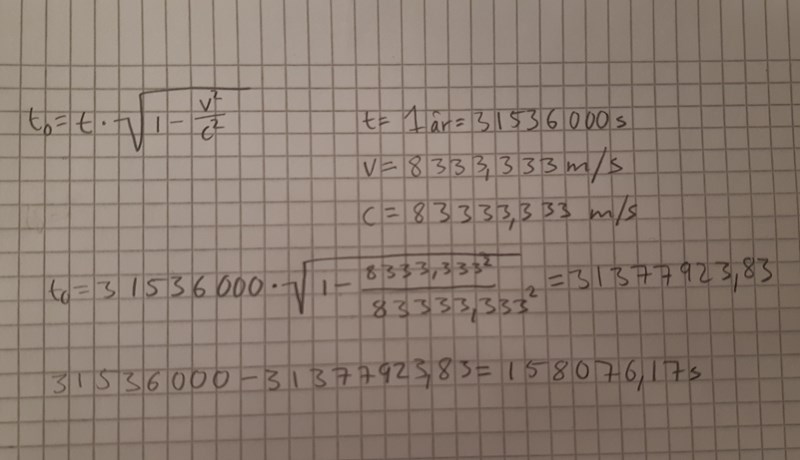 t₀ = t · √(1 − v²/c²)
t = 1 år = 31536000 s
v = 8333,333 m/s
c = 83333,333 m/s
t₀ = 31536000 · √(1 − 8333,333²/83333,333²) = 31377923,83
31536000 − 31377923,83 = 158076,17 s